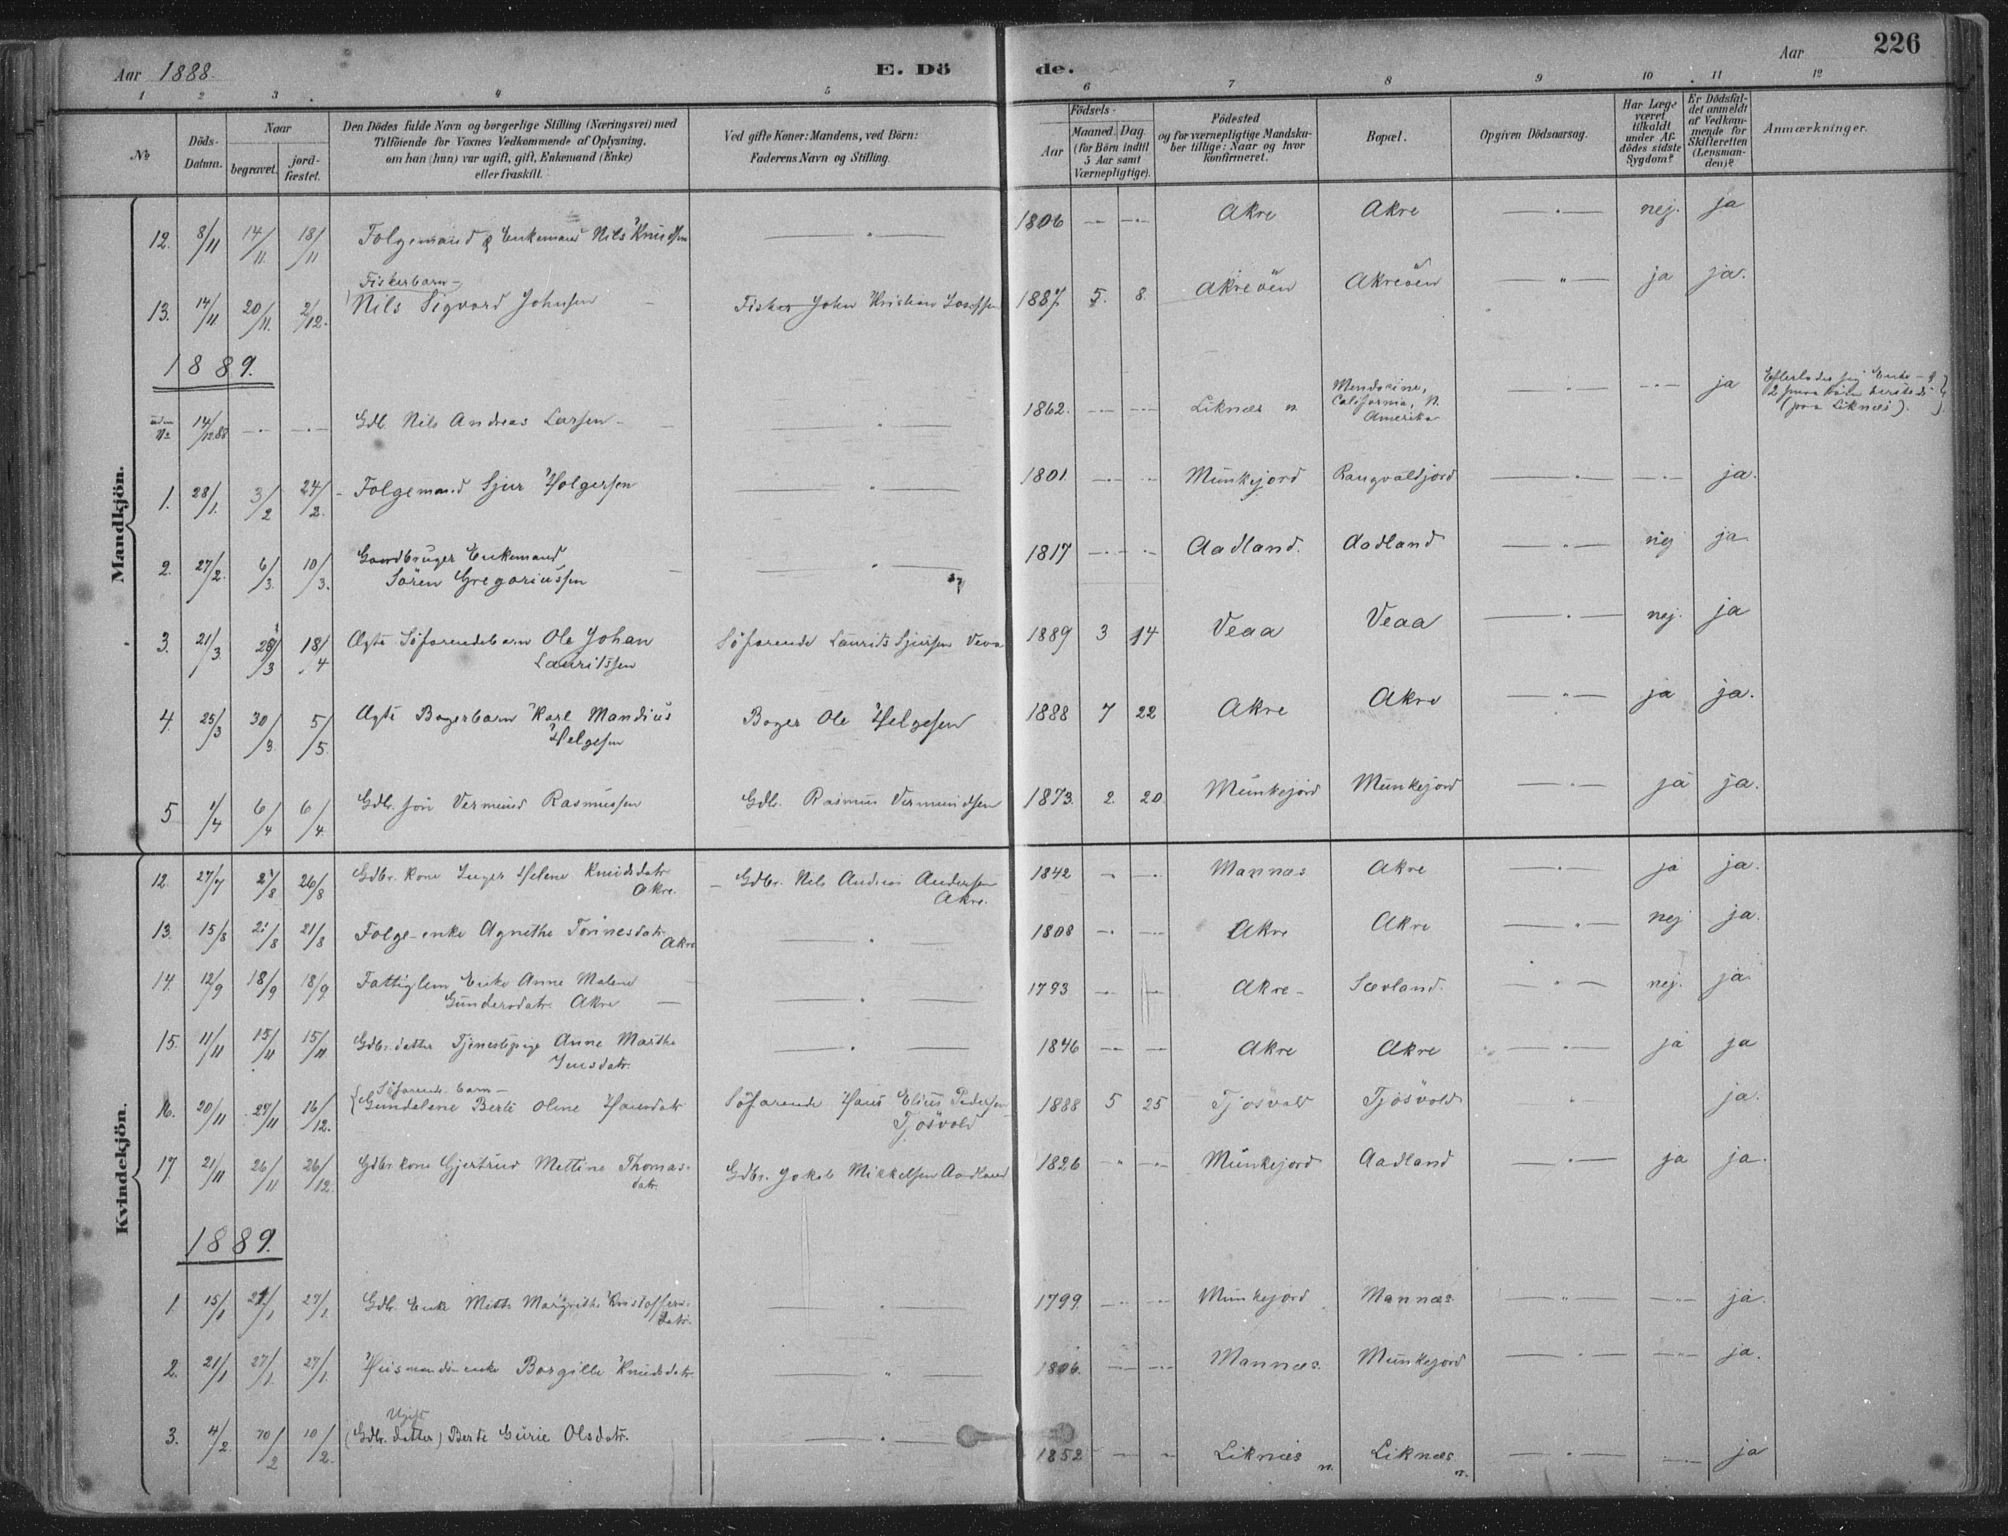 Aar 1888.
E. Dö de.
Aar
226
1 2 3 4 5 6 7 8 9 10 11 12
No
Döds-Datum.
Naar
begravet.
jordfæstet.
Den Dödes fulde Navn og borgerlige Stilling (Næringsvei) med
Tilföiende for Voxnes Vedkommende af Oplysning,
om han (hun) var ugift, gift, Enkemand (Enke)
eller fraskilt.
Ved gifte Koner: Mandens, ved Börn:
Faderens Navn og Stilling.
Födsels-
Aar
Maaned. Dag.
(for Börn indtil
5 Aar samt
Værnepligtige).
Födested
og for værnepligtige Mandskaber tillige: Naar og hvor
konfirmeret.
Bopæl.
Opgiven Dödsaarsag.
Har Læge
været
tilkaldt
under Afdödes sidste
Sygdom?
Er Dödsfaldet anmeldt
af Vedkommende for
Skifteretten
(Lensmanden)?
Anmærkninger.
Mandkjön.
12. 8/11 14/11 18/11 Folgemand & Enkemand Nils Knudsen — " — 1806 — — Akre Akre — " — nej. ja
Fiskerbarn —
13. 14/11 20/11 2/12. Nils Sigvard Johnsen — Fisker John Kristian 1887. 5. 8. Akreöen Akreöen — " — ja ja.
1889.
uden No 14/12 88 — — Gdb. Nils Andreas Larsen — — " — 1862. — — Liknæs n. Mendocine, California, N. Amerika — " — — ja Efterlader sig Enke — & 2 (paa Liknæs).
1. 28/1. 3/2 24/2. Folgemand Sjur Holgersen — " — 1801. — — Munkejord Rangvaldjord — " — — ja.
2. 27/2. 6/3. 10/3. Gaardbruger Enkemand
Sören Gregoriussen — " — 1817 — — Aadland. Aadland — " — nej ja
3. 21/3. 28/3 18/4 Ægte Söfarendebarn Ole Johan
Lauritssen Söfarende Laurits Sjursen Veaa 1889 3 14 Veaa Veaa — " — nej. ja
4. 25/3 30/3. 5/5. Ægte Bogerbarn Karl Mandius
Helgesen Boger Ole Helgesen 1888 7 22 Akre Akre — " — ja ja.
5 1/4 6/4 6/4 Gdb. sön Vermund Rasmussen Gdb. Rasmus Vermundsen 1873. 2. 20. Munkejord Munkejord — " — ja ja.
Kvindekjön.
12. 27/7 2/8 26/8 Gdbr. kone Inger Helene Knudsdatr
Akre. — Gdbr. Nils Andreas Andersen
Akre. 1842 — — Mannæs Akre — " — ja ja.
13. 15/8 21/8 21/8 Folge-enke Agnethe Törrisdatr.
Akre — " — 1808 — — Akre Akre — " — nej ja.
14. 12/9 18/9 18/9 Fattiglem Enke Anne Malene
Gundersdatr. Akre — " — 1793 — — Akre — Sævland. — " — nej. ja
15. 11/11 15/11 15/11 Gdbr. datter Tjenestepige Anne Marthe
Jensdatr. — " — 1846 — — Akre Akre — " — ja ja
Söfarende barn —
16. 20/11 27/11 16/12. Gundelene Berte Oline Hansdatr Söfarende Hans Elius Pedersen
Tjösvold 1888 5 25 Tjösvold Tjösvold " ja.
17. 21/11 26/11 26/12. Gdbr. kone Gjertrud Mettine Thomas-
datr. Gdbr. Jakob Mikkelsen Aadland 1826 — — Munkejord Aadland — " — ja ja.
1889.
1. 15/1 21/1 27/1. Gdb. Enke Mette Margrethe Kristoffers-
datr. — " — 1799. — — Munkejord Mannæs. — " — — ja.
2. 21/1 27/1. 27/1. Husmandsenke Borgille Knudsdatr — " — 1806. — — Mannæs. Munkejord — " — — ja.
Ugift
3. 4/2 10/2 10/2. (Gdbr. datter) Berte Gurie Olsdatr. — " — 1852 — — Liknæs n. Liknæs n. — " — — ja